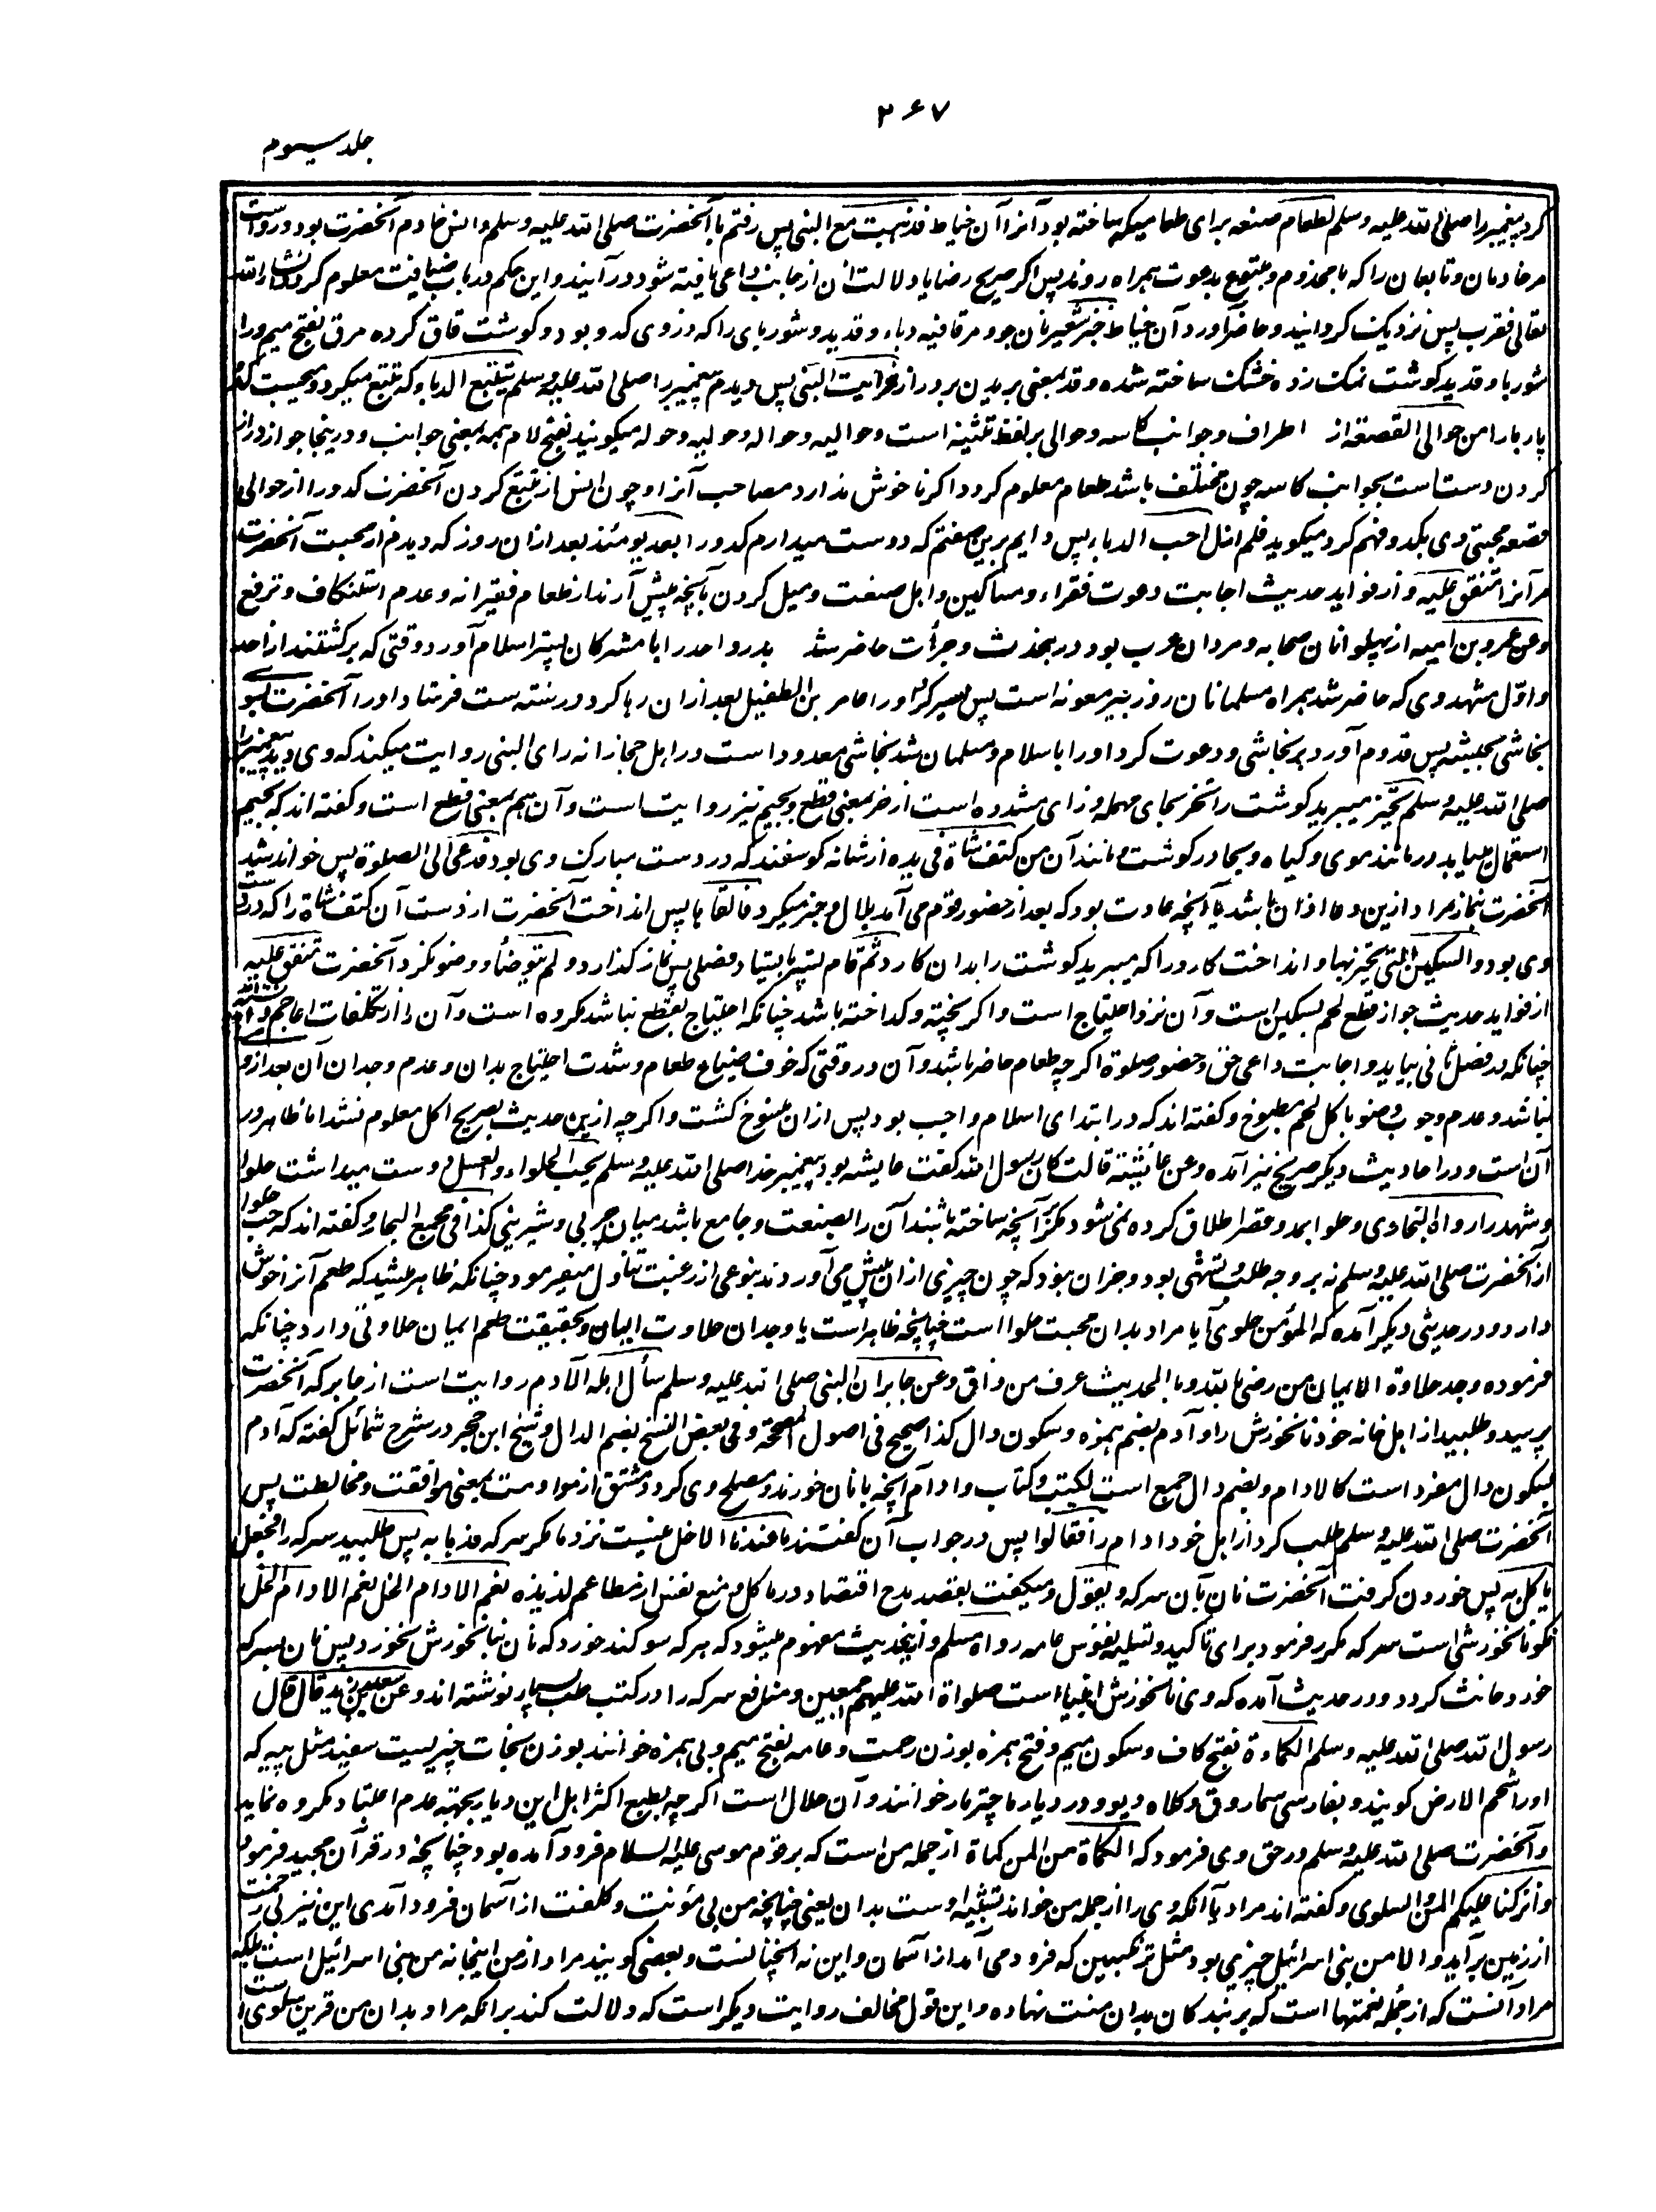 ۳۶۷
جلد سیوم
کرد پیغمبر را صلی الله علیه وسلم لطعام صنعه برای طعامیکه ساخته بود آنرا آن خیاط فذهبت مع النبی پس رفتم با آنحضرت صلی الله علیه وسلم وانس خادم آنحضرت بود و رواست
مر خادمان و تابعان را که با مخدوم و متبوع بدعوت همراه روند پس اگر صریح رضا یا دلالت آن از جانب داعی یافته شود در آیند و این حکم در باب ضیافت معلوم کردد انشاء الله
تعالی فقرب پس نزدیک کردانید و حاضر آورد آن خیاط خبز شعیر نان جو و مرقا فیه دباء و قدید و شوربای را که در وی کدو بود و کوشت قاق کرده مرق بفتح میم و را
شوربا و قدید کوشت نمک زده خشک ساخته شده و قد بمعنی بریدن بدرازی فرایت النبی پس دیدم پیغمبر را صلی الله علیه وسلم یتتبع الدباء که تتبع میکرد و میجست کدو
پارها را من حوالی القصعة از اطراف و جوانب کاسه و حوالی بر لفظ تثنیه است و حوالیه و حواله و حولیه و حوله میکویند بفتح لام همه بمعنی جوانب و درینجا جواز دراز
کردن دست است بجوانب کاسه چون مختلف باشد طعام معلوم کردد اکر ناخوش ندارد مصاحب آنرا و چون انس از تتبع کردن آنحضرت کدو را از حوالی
قصعه محبتی وی بکدو فهم کرد میکوید فلم ازل احب الدباء پس دایم برین صفتم که دوست میدارم کدو را بعد یومئذ بعد از ان روز که دیدم از محبت آنحضرت
مر آنرا متفق علیه و از فواید حدیث اجابت دعوت فقراء و مساکین و اهل صنعت و میل کردن بآنچه پیش آرند از طعام فقیرانه و عدم استنکاف و ترفع
وعن عمرو بن امیه از پهلوانان صحابه و مردان عرب بود در نجدت و جرأت حاضر شد بدر و احد را با مشرکان پستر اسلام آورد وقتی که برکشتند از احد
و اول مشهد وی که حاضر شد همراه مسلمانان روز بیر معونه است پس اسیر کرد او را عامر بن الطفیل بعد از ان رها کرد و در سنه ست فرستاد او را آنحضرت بسوی
نجاشی بحبشه پس قدوم آورد بر نجاشی و دعوت کرد او را باسلام و مسلمان شد نجاشی معدود است در اهل حجاز انه رای النبی روایت میکند که وی دید پیغمبر را
صلی الله علیه وسلم یحتز میبرید کوشت را تحز بحای مهمله و زای مشدده است از حز بمعنی قطع و بجیم نیز روایت است و آن هم بمعنی قطع است و کفته اند که بجیم
استعمال میاید در مانند موی و کیاه و بحا در کوشت و مانند آن من کتف شاة فی یده از شانه کوسفند که در دست مبارک وی بود فدعی الی الصلوة پس خوانده شد
آنحضرت بنماز مراد ازین دعا اذان باشد یا آنچه عادت بود که بعد از حضور قوم می آمد بلال و خبر میکرد فالقاها پس انداخت آنحضرت از دست آن کتف شاة را که در دست
وی بود والسکین التی یحتز بها و انداخت کارد را که میبرید کوشت را بدان کارد ثم قام پستر بایستاد فصلی پس نماز کذارد ولم یتوضأ و وضو نکرد آنحضرت متفق علیه
از فواید حدیث جواز قطع لحم بسکین است و آن نزد احتیاج است و اکر پخته و کداخته باشد چنانکه احتیاج بقطع نباشد مکروه است و آن را از تکلفات اعاجم
چنانکه در فصل ثانی بیاید و اجابت داعی حق و حضور صلوة اکرچه طعام حاضر باشد و آن در وقتی که خوف ضیاع طعام و شدت احتیاج بدان و عدم وجدان آن بعد از و
نباشد و عدم وجوب وضو باکل لحم مطبوخ و کفته اند که در ابتدای اسلام واجب بود پس از ان منسوخ کشت و اکرچه ازین حدیث بصریح اکل معلوم نشد اما ظاهر در
آن است و در احادیث دیکر صریح نیز آمده وعن عائشة قالت کان رسول الله کفت عایشه بود پیغمبر خدا صلی الله علیه وسلم یحب الحلواء والعسل دوست میداشت حلوا
و شهد را رواه البخاری و حلوا بمد و قصر اطلاق کرده نمی شود مکر بر آنچه ساخته باشند آن را بصنعت و جامع باشد میان چربی و شیرینی کذا فی مجمع البحار و کفته اند که حب حلوا
از آنحضرت صلی الله علیه وسلم نه بر وجه طلب و تشهی بود و جز ان نبود که چون چیزی از ان پیش می آوردند بنوعی از رغبت تناول میفرمود چنانکه ظاهر میشد که طعم آنرا خوش
دارد و در حدیثی دیکر آمده که المؤمن حلوی آیا مراد بدان محبت حلوا است چنانچه ظاهر است یا وجدان حلاوت ایمان و بحقیقت طعم ایمان حلاوتی دارد چنانکه
فرموده وجد حلاوة الایمان من رضی بالله ربا الحدیث عرف من ذاق وعن جابر ان النبی صلی الله علیه وسلم سأل اهله الادم روایت است از جابر که آنحضرت
پرسید و طلبید از اهل خانه خود نانخورش را و آدم بضم همزه و سکون دال کذا صحیح فی اصول المصححة و فی بعض النسخ بضم الدال و شیخ ابن حجر در شرح شمائل کفته که آدم
بسکون دال مفرد است کالادام و بضم دال جمع است لکیتب و کتاب و ادام آنچه با نان خورند و مصلح وی کردد مشتق از مواومت بمعنی موافقت و مخالطت پس
آنحضرت صلی الله علیه وسلم طلب کرد از اهل خود ادام را فقالوا پس در جواب آن کفتند ما عندنا الا خل نیست نزد ما مکر سرکه فدعا به پس طلبید سرکه را فجعل
یاکل به پس خوردن کرفت آنحضرت نان بآن سرکه و یقول و میکفت بقصد مدح اقتصاد در ماکل و منع نفس از مطاعم لذیذه نعم الادام الخل نعم الادام الخل
نکو نانخورشی است سرکه مکرر فرمود برای تاکید و تسلیه نفوس عامه رواه مسلم و ازینحدیث مفهوم میشود که هر که سوکند خورد که نان بنانخورش نخورد پس نان بسرکه
خورد حانث کردد و در حدیث آمده که وی نانخورش انبیاء است صلواة الله علیهم اجمعین و منافع سرکه را در کتب طب بسیار نوشته اند وعن سعید بن زید قال قال
رسول الله صلی الله علیه وسلم الکماءة بفتح کاف و سکون میم و فتح همزه بوزن رحمت و عامه بفتح میم و بی همزه خوانند بوزن نجات چیزیست سفید مثل پیه که
او را شحم الارض کویند و بفارسی سماروق و کلاه دیو و در دیار ما چترمار خوانند و آن حلال است اکرچه بطبع اکثر اهل این دیار بجهته عدم اعتیاد مکروه نماید
و آنحضرت صلی الله علیه وسلم در حق وی فرمود که الکماة من المن کماة از جمله من است که بر قوم موسی علیه السلام فرود آمده بود چنانچه در قرآن مجید فرمود
وانزلنا علیکم المن والسلوی و کفته اند مراد بآنکه وی را از جمله من خواند تشبیه اوست بدان یعنی چنانچه من بی مؤنت و کلفت از آسمان فرود آمدی این نیز بی زحمت
از زمین برآید والا من بنی اسرائیل چیزی بود مثل ترنکبین که فرود می آمد از آسمان و این نه آنچنانست و بعضی کویند مراد از من اینجا نه من بنی اسرائیل است بلکه
مراد آنست که از جمله نعمتها است که بر بندکان بدان منت نهاده و این قول مخالف روایت دیکر است که دلالت کند برانکه مراد بدان من قرین سلوی است